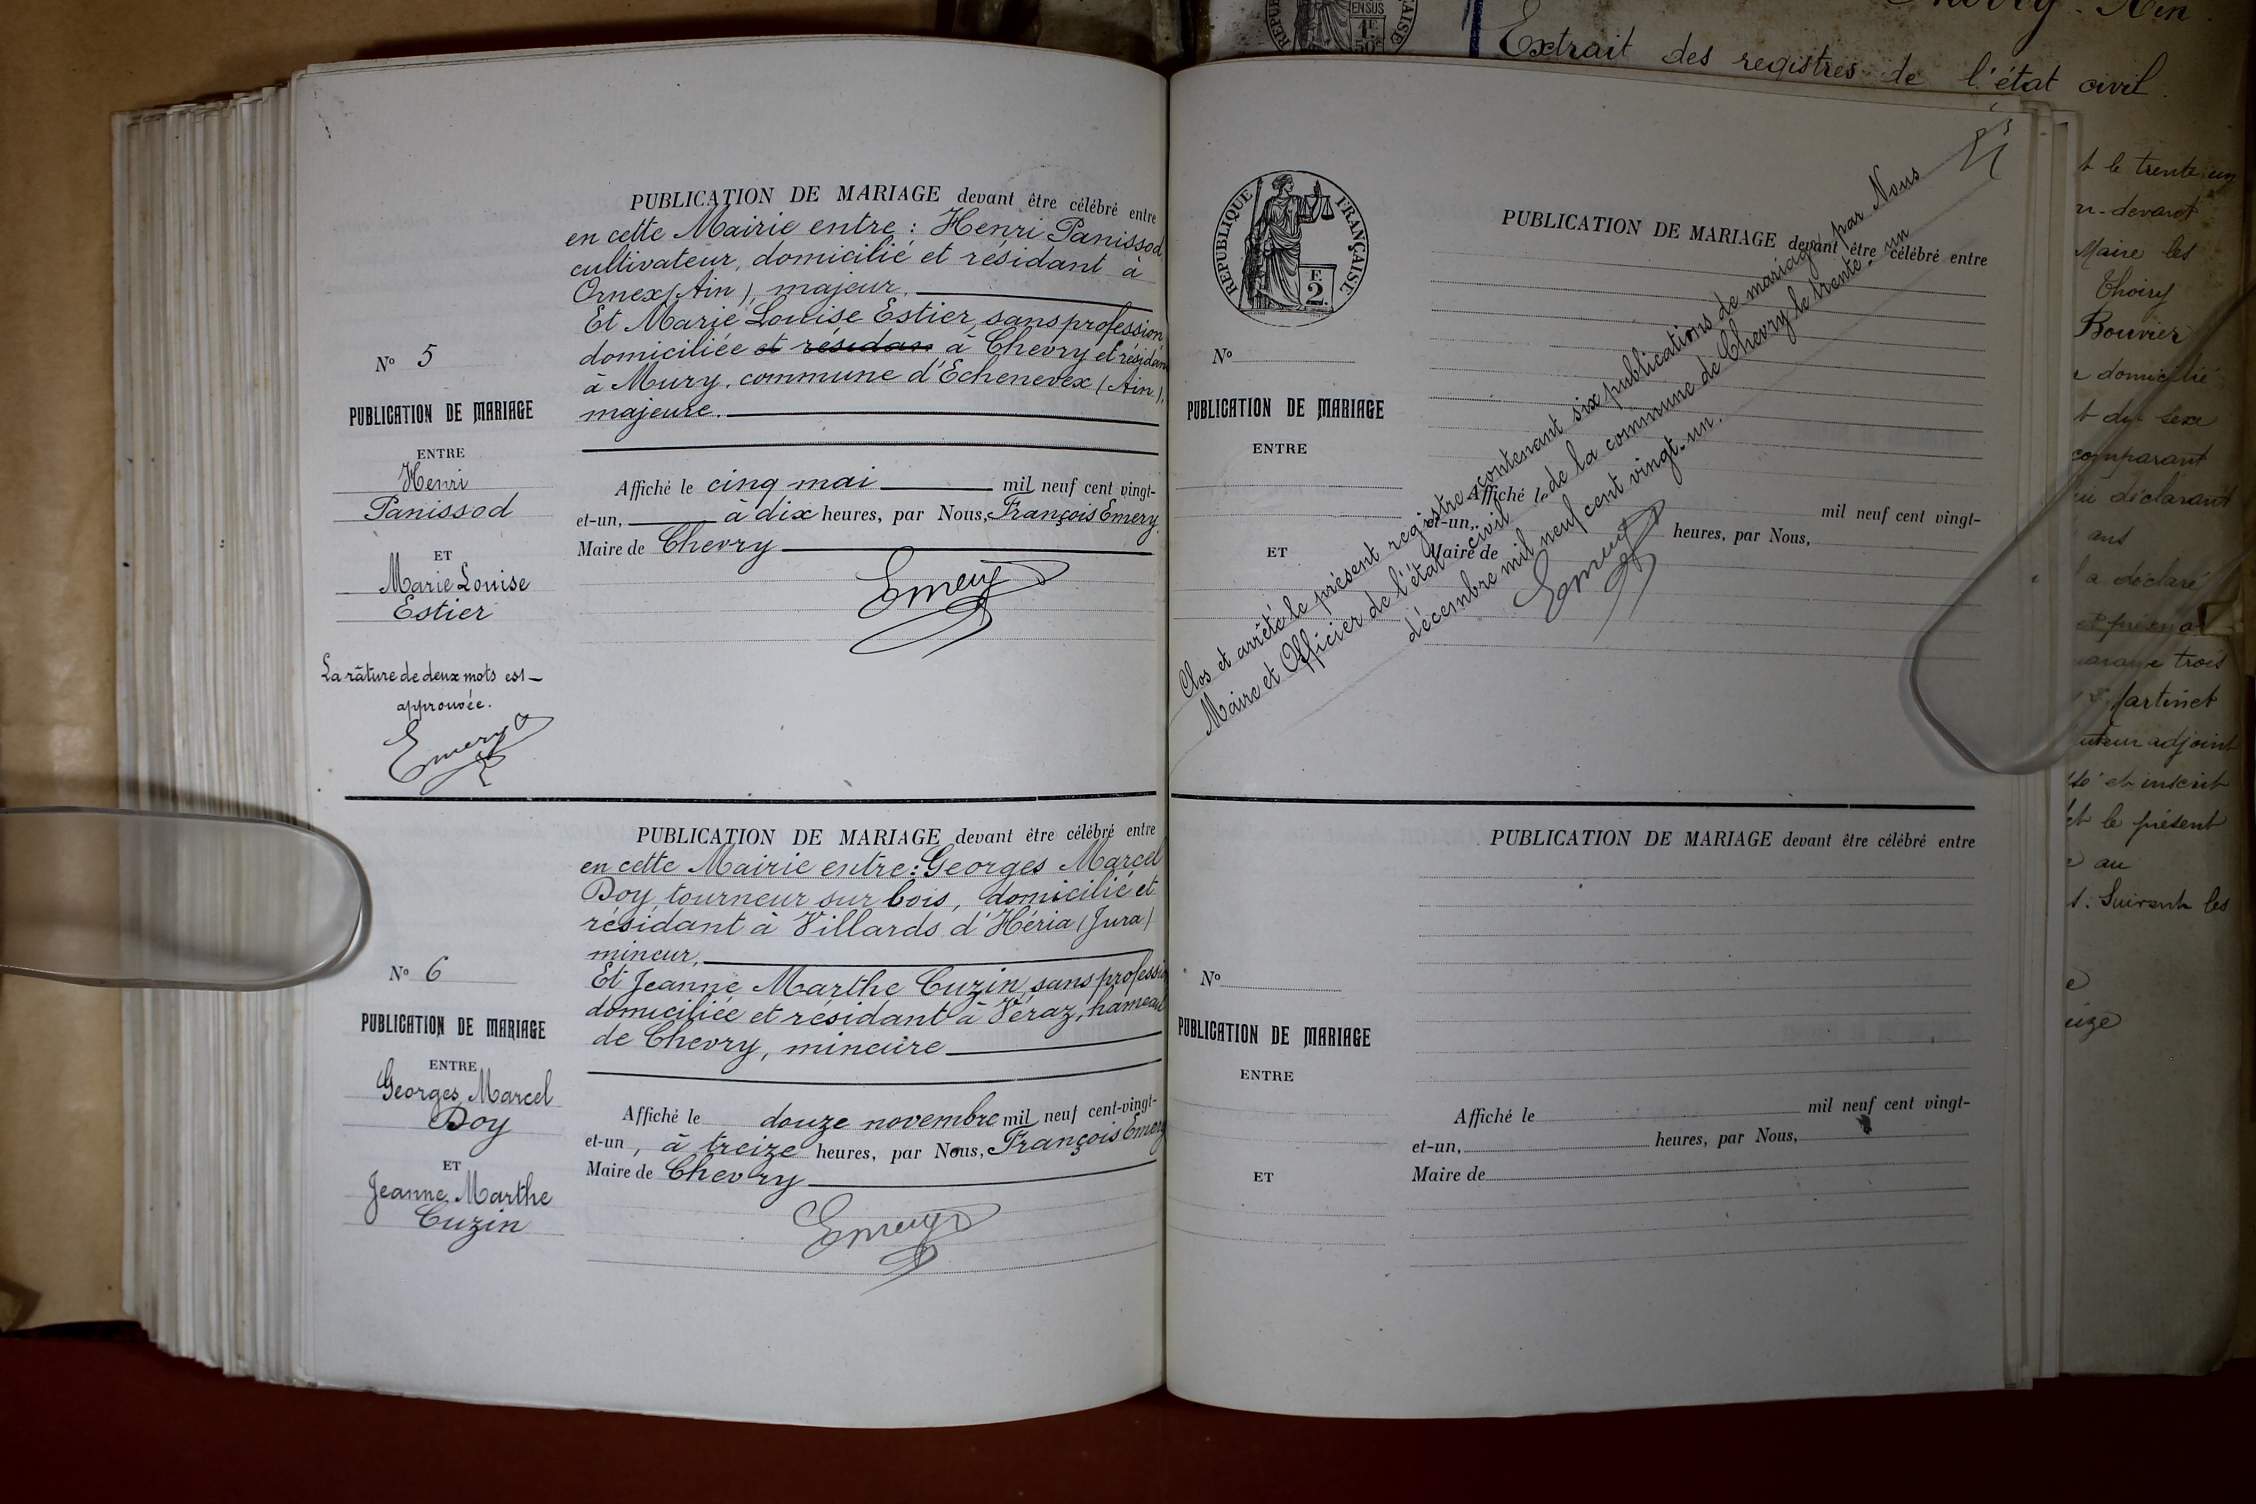 PUBLICATION DE MARIAGE devant être célébré entre
en cette Mairie entre : Henri Panissod,
cultivateur, domicilié et résidant à
Ornex (Ain), majeur.
Et Marie Louise Estier, sans profession,
domiciliée et résidan à Chevry et résidan
à Mury, commune d'Echenevex (Ain),
majeure.
N° 5
PUBLICATION DE MARIAGE
ENTRE
Henri
Panissod
ET
Marie Louise
Estier
La râture de deux mots est
approuvée.
Emery
Affiché le cinq mai mil neuf cent vingt-
et-un, à dix heures, par Nous, François Emery,
Maire de Chevry
Emery
PUBLICATION DE MARIAGE devant être célébré entre
en cette Mairie entre : Georges Marcel
Doy, tourneur sur bois, domicilié et
résidant à Villards d'Héria (Jura)
mineur,
Et Jeanne Marthe Cuzin, sans professio
domiciliée et résidant à Véraz, hameau
de Chevry, mineure
N° 6
PUBLICATION DE MARIAGE
ENTRE
Georges Marcel
Doy
ET
Jeanne Marthe
Cuzin
Affiché le douze novembre mil neuf cent-vingt-
et-un, à treize heures, par Nous, François Emery
Maire de Chevry
Emery
Extrait des registres de l'état civil.
RÉPUBLIQUE FRANÇAISE
2 F.
PUBLICATION DE MARIAGE devant être célébré entre
N°
PUBLICATION DE MARIAGE
ENTRE
ET
Affiché le mil neuf cent vingt-
et-un, heures, par Nous,
Maire de
Clos et arrêté le présent registre contenant six publications de mariage par Nous
Maire et Officier de l'état civil de la commune de Chevry le trente-un
décembre mil neuf cent vingt-un.
Emery
PUBLICATION DE MARIAGE devant être célébré entre
N°
PUBLICATION DE MARIAGE
ENTRE
ET
Affiché le mil neuf cent vingt-
et-un, heures, par Nous,
Maire de
le trente un
devant
Maire les
Thoiry
Bouvier
domicilié
du sexe
comparant
déclarant
ans
a déclaré
trois
Martinet
adjoint
et inscrit
le présent
au
Suivent les